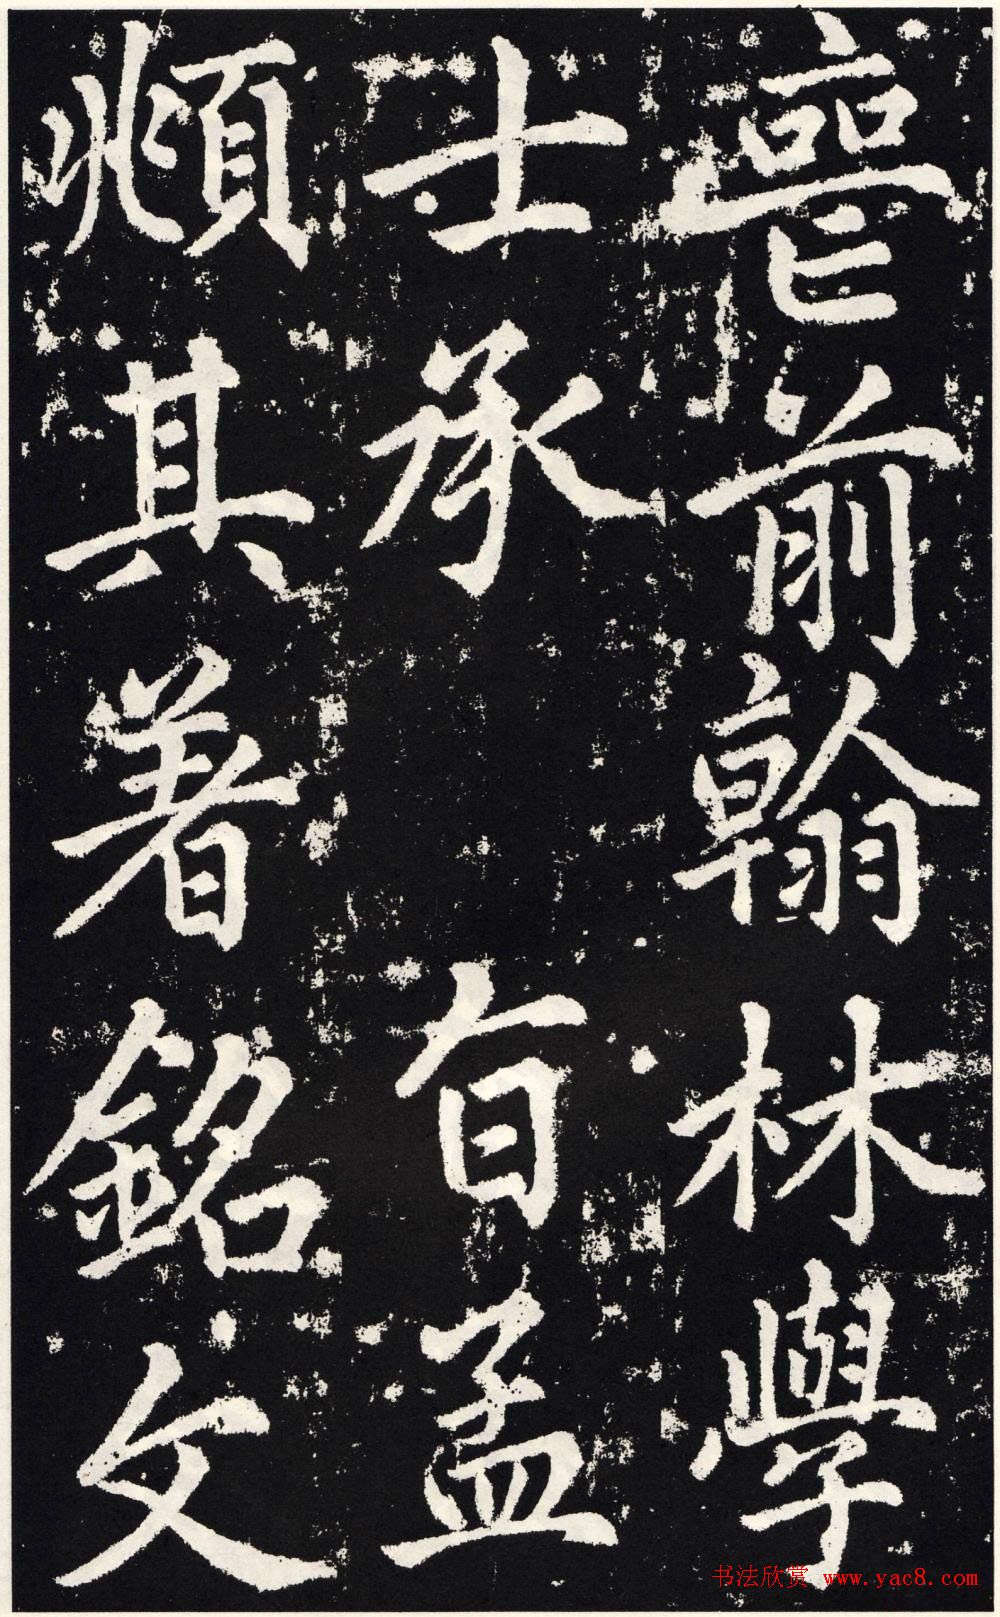 前翰林學
士承旨孟
頫其著銘文
书法欣赏 www.yac8.com